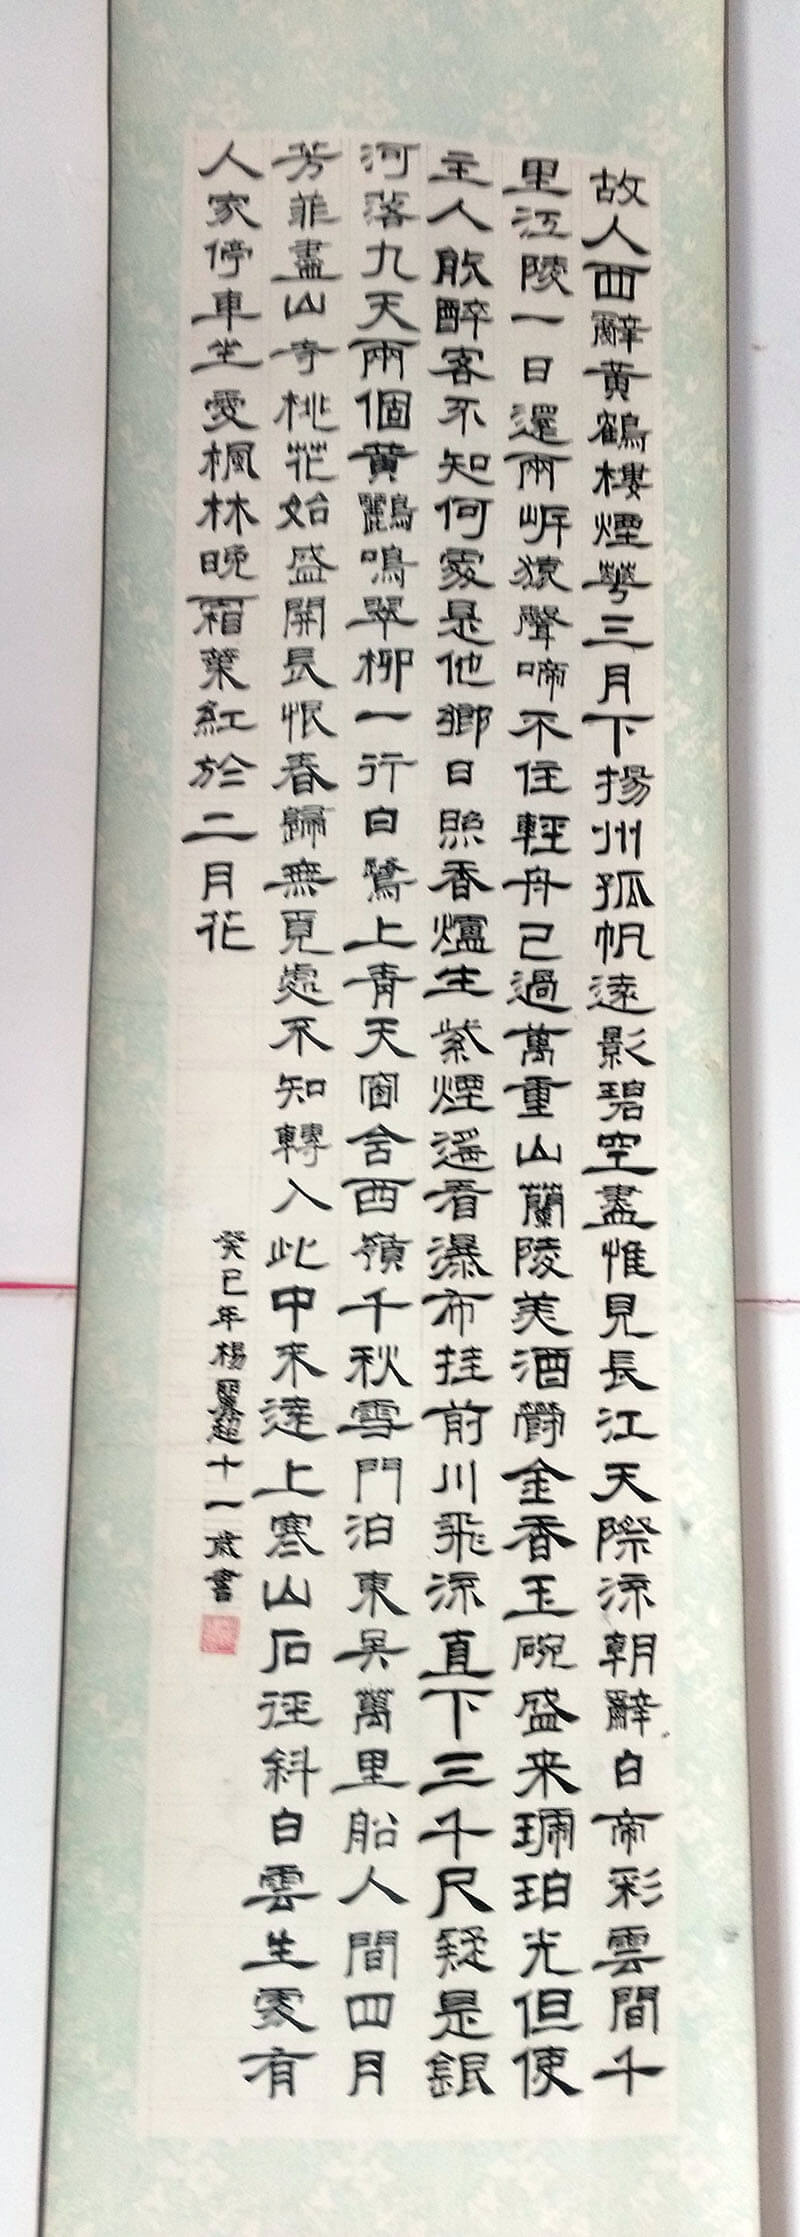 故人西辭黄鶴樓煙華三月下揚州孤帆遠影碧空盡惟見長江天際流朝辭白帝彩雲間千
里江陵一日還兩岸猿聲啼不住輕舟已過萬重山蘭陵美酒欝金香玉碗盛来琥珀光但使
主人能醉客不知何處是他鄉日照香爐生紫煙遥看瀑布挂前川飛流直下三千尺疑是銀
河落九天兩個黄鸝鳴翠柳一行白鷺上青天窗含西嶺千秋雪門泊東吴萬里船人間四月
芳菲盡山寺桃花始盛開長恨春歸無覓處不知轉入此中来遠上寒山石徑斜白雲生處有
人家停車坐愛楓林晚霜葉紅於二月花
癸巳年楊翼超十一歲書